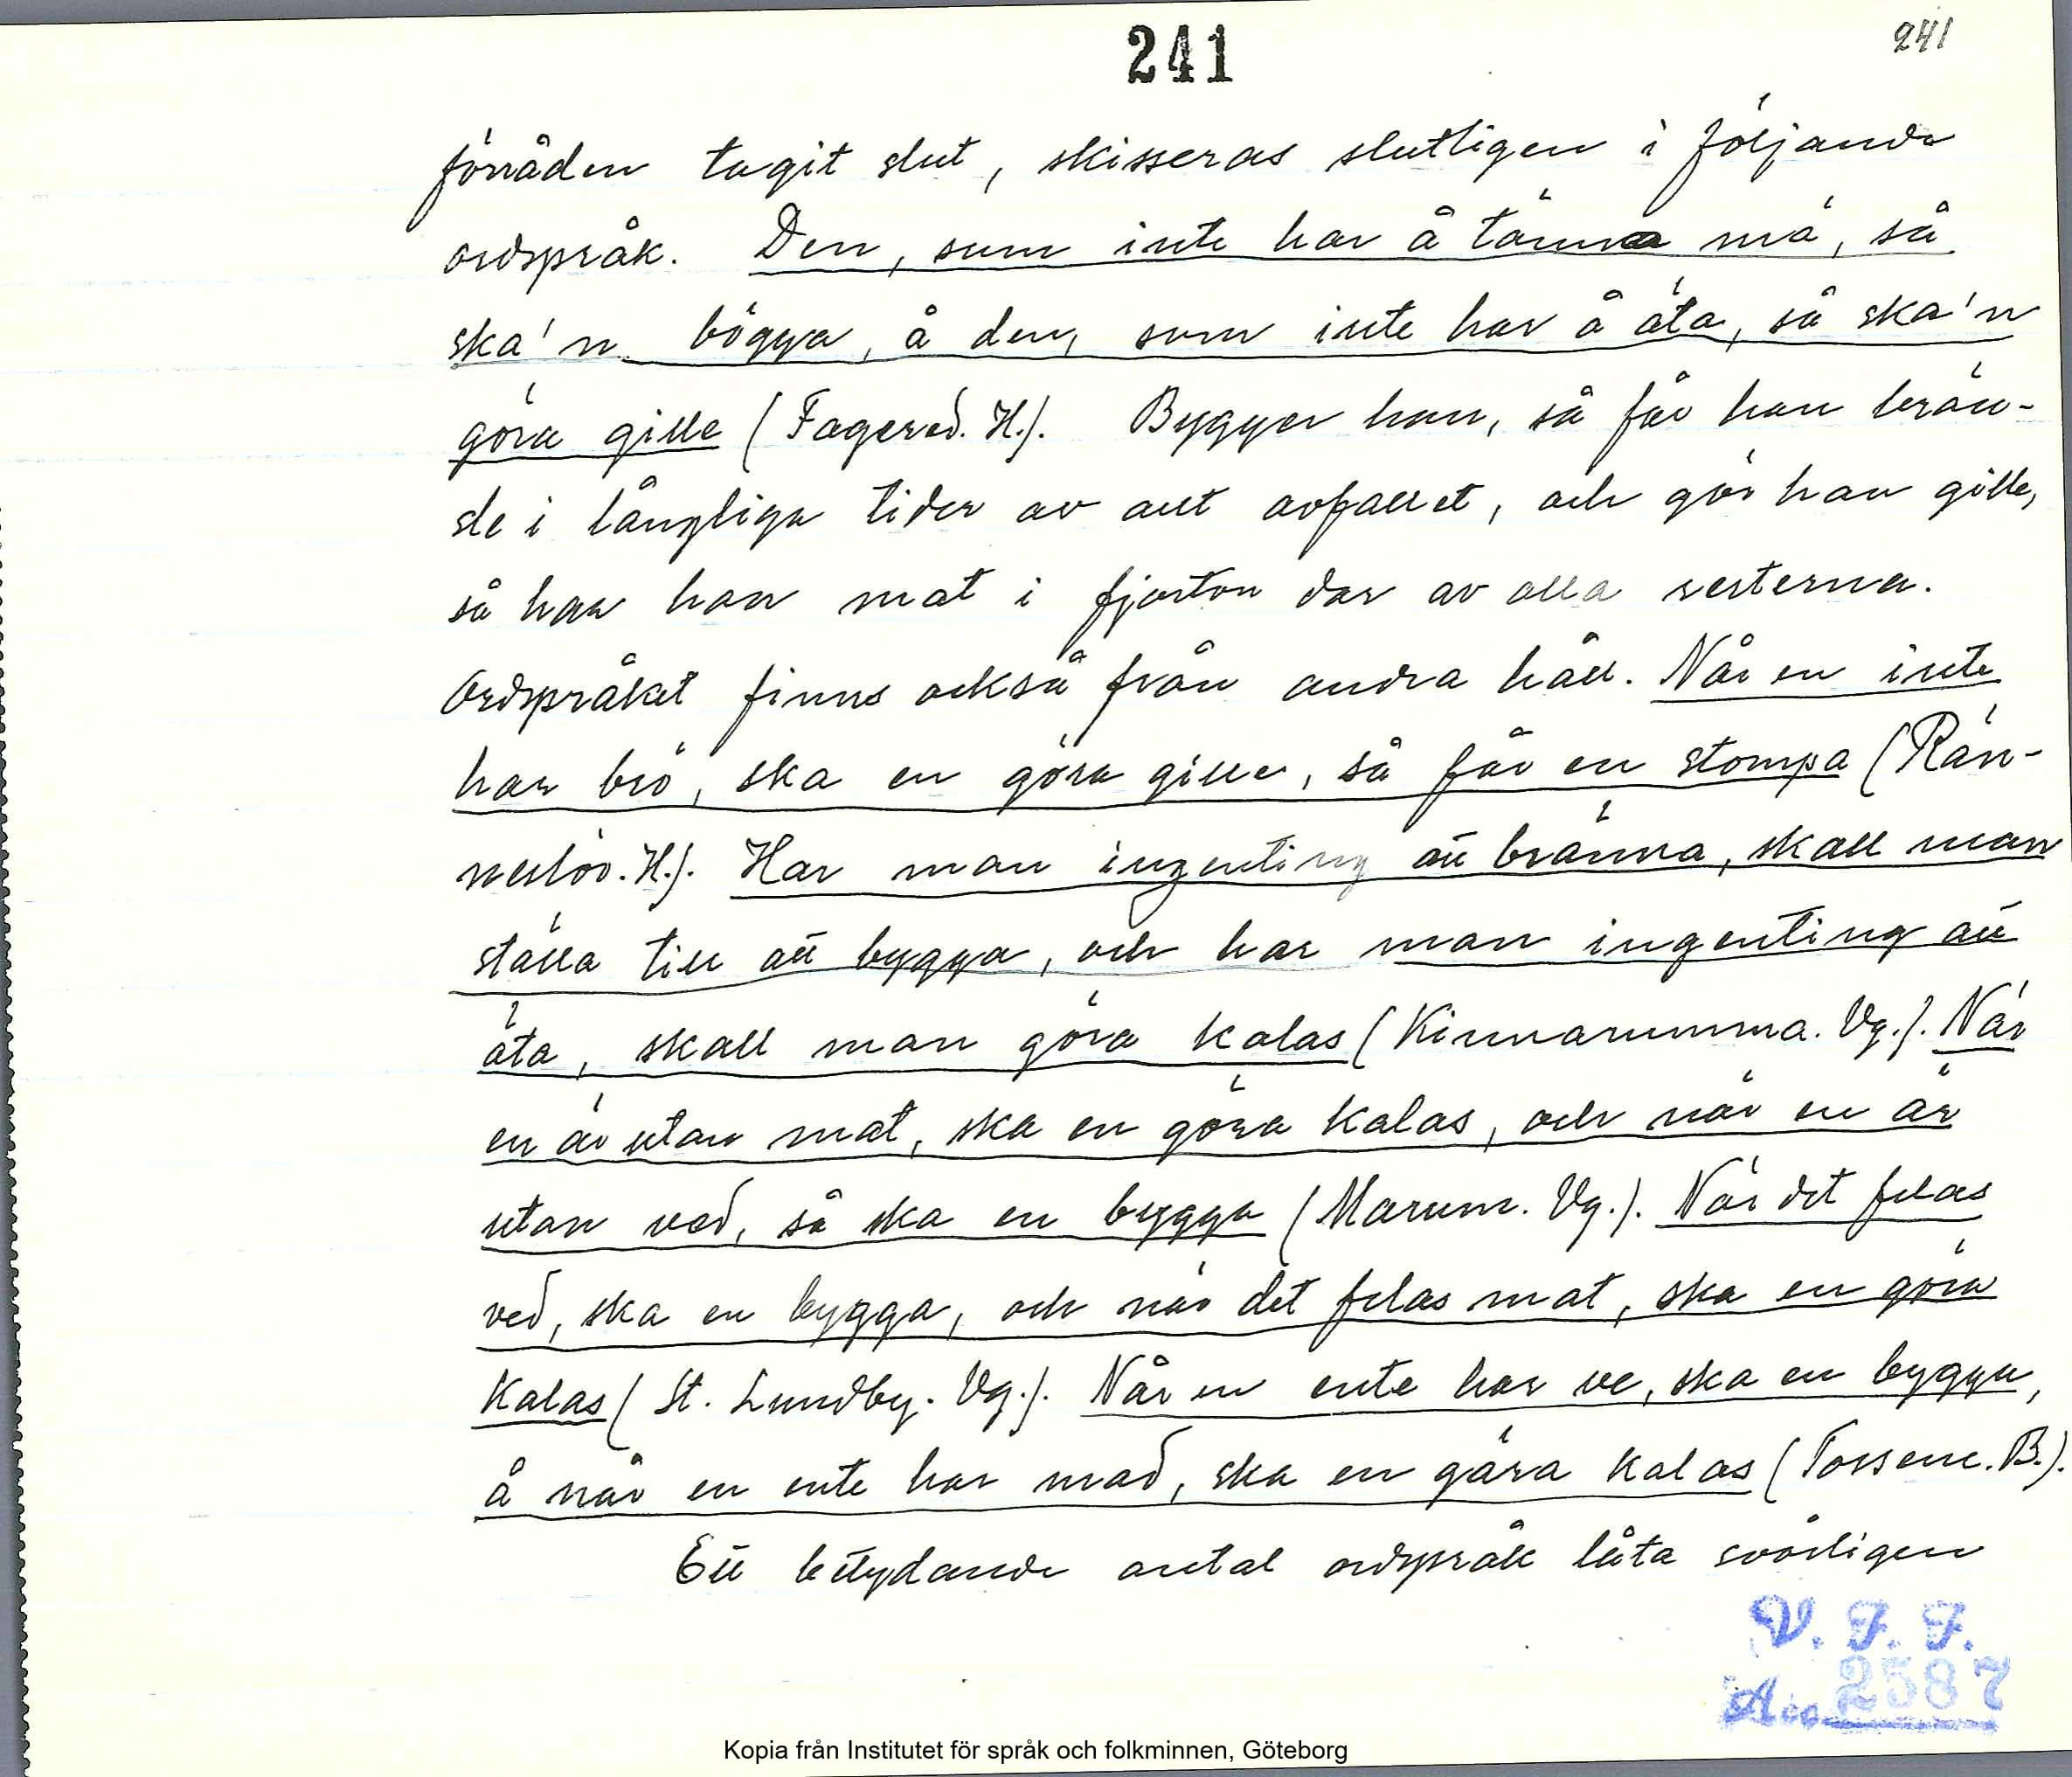 241
241
förråden tagit slut, skisseras slutligen i följande
ordspråk. Den, som inte har å tänna mä, så
ska'n bögga, å den, som inte har å äta, så ska'n
göra gille (Fagered. H.). Bygger han, så får han brän-
sle i långliga tider av allt avfallet, och gör han gille,
så har han mat i fjorton dar av alla resterna.
Ordspråket finns också från andra håll. Når en inte
har brö, ska en göra gille, så får en stompa (Rän-
neslöv. H.). Har man ingenting att bränna, skall man
ställa till att bygga, och har man ingenting att
äta, skall man göra kalas (Kinnarumma. Vg.). När
en är utan mat, ska en göra kalas, och när en är
utan ved, så ska en bygga (Marum. Vg.). När det felas
ved, ska en bygga, och när det felas mat, ska en göra
kalas (St. Lundby. Vg.). Når en ente har ve, ska en bygga,
å når en ente har mad, ska en gära kalas (Tossene. B.).
Ett betydande antal ordspråk låta svårligen
V. F. F.
Acc. 2587
Kopia från Institutet för språk och folkminnen, Göteborg